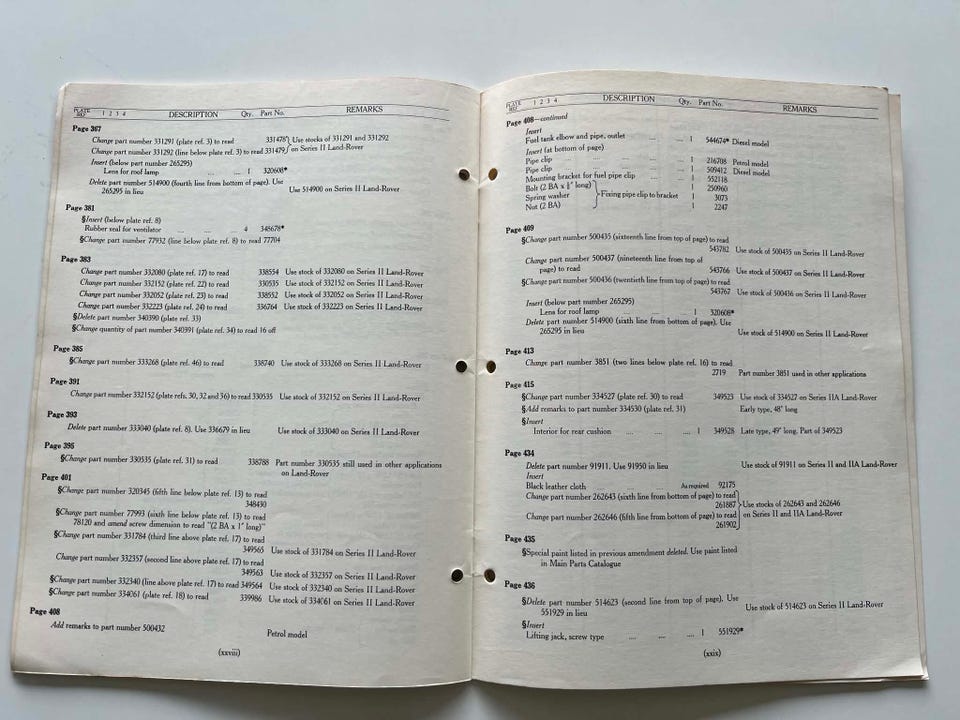 PLATE REF. 1 2 3 4 DESCRIPTION Qty. Part No. REMARKS
Page 367
Change part number 331291 (plate ref. 3) to read 331478 Use stocks of 331291 and 331292
Change part number 331292 (line below plate ref. 3) to read 331479 on Series II Land-Rover
Insert (below part number 265295)
Lens for roof lamp ... ... ... 1 320608*
Delete part number 514900 (fourth line from bottom of page). Use
265295 in lieu Use 514900 on Series II Land-Rover
Page 381
§Insert (below plate ref. 8)
Rubber seal for ventilator ... ... ... 4 348678*
§Change part number 77932 (line below plate ref. 8) to read 77704
Page 383
Change part number 332080 (plate ref. 17) to read 338554 Use stock of 332080 on Series II Land-Rover
Change part number 332152 (plate ref. 22) to read 330535 Use stock of 332152 on Series II Land-Rover
Change part number 332052 (plate ref. 23) to read 338552 Use stock of 332052 on Series II Land-Rover
Change part number 332223 (plate ref. 24) to read 336764 Use stock of 332223 on Series II Land-Rover
§Delete part number 340390 (plate ref. 33)
§Change quantity of part number 340391 (plate ref. 34) to read 16 off
Page 385
§Change part number 333268 (plate ref. 46) to read 338740 Use stock of 333268 on Series II Land-Rover
Page 391
Change part number 332152 (plate refs. 30, 32 and 36) to read 330535 Use stock of 332152 on Series II Land-Rover
Page 393
Delete part number 333040 (plate ref. 8). Use 336679 in lieu Use stock of 333040 on Series II Land-Rover
Page 395
§Change part number 330535 (plate ref. 31) to read 338788 Part number 330535 still used in other applications
on Land-Rover
Page 401
§Change part number 320345 (fifth line below plate ref. 13) to read
348430
§Change part number 77993 (sixth line below plate ref. 13) to read
78120 and amend screw dimension to read "(2 BA x 1" long)"
§Change part number 331784 (third line above plate ref. 17) to read
349565 Use stock of 331784 on Series II Land-Rover
Change part number 332357 (second line above plate ref. 17) to read
349563 Use stock of 332357 on Series II Land-Rover
§Change part number 332340 (line above plate ref. 17) to read 349564 Use stock of 332340 on Series II Land-Rover
§Change part number 334061 (plate ref. 18) to read 339986 Use stock of 334061 on Series II Land-Rover
Page 408
Add remarks to part number 500432 Petrol model
(xxviii)
PLATE REF. 1 2 3 4 DESCRIPTION Qty. Part No. REMARKS
Page 408—continued
Insert
Fuel tank elbow and pipe, outlet ... ... 1 544674* Diesel model
Insert (at bottom of page)
Pipe clip ... ... ... ... 1 216708 Petrol model
Pipe clip ... ... ... ... 1 509412 Diesel model
Mounting bracket for fuel pipe clip ... ... 1 552118
Bolt (2 BA x ½" long) 1 250960
Spring washer Fixing pipe clip to bracket 1 3073
Nut (2 BA) 1 2247
Page 409
§Change part number 500435 (sixteenth line from top of page) to read
543782 Use stock of 500435 on Series II Land-Rover
Change part number 500437 (nineteenth line from top of
page) to read 543766 Use stock of 500437 on Series II Land-Rover
§Change part number 500436 (twentieth line from top of page) to read
543767 Use stock of 500436 on Series II Land-Rover
Insert (below part number 265295)
Lens for roof lamp ... ... ... 1 320608*
Delete part number 514900 (sixth line from bottom of page). Use
265295 in lieu Use stock of 514900 on Series II Land-Rover
Page 413
Change part number 3851 (two lines below plate ref. 16) to read
2719 Part number 3851 used in other applications
Page 415
§Change part number 334527 (plate ref. 30) to read 349523 Use stock of 334527 on Series IIA Land-Rover
§Add remarks to part number 334530 (plate ref. 31) Early type, 48" long
§Insert
Interior for rear cushion ... ... ... 1 349528 Late type, 49" long. Part of 349523
Page 434
Delete part number 91911. Use 91950 in lieu Use stock of 91911 on Series II and IIA Land-Rover
Insert
Black leather cloth ... ... ... As required 92175
Change part number 262643 (sixth line from bottom of page) to read
261887 Use stocks of 262643 and 262646
Change part number 262646 (fifth line from bottom of page) to read on Series II and IIA Land-Rover
261902
Page 435
§Special paint listed in previous amendment deleted. Use paint listed
in Main Parts Catalogue
Page 436
§Delete part number 514623 (second line from top of page). Use
551929 in lieu Use stock of 514623 on Series II Land-Rover
§Insert
Lifting jack, screw type ... ... ... 1 551929*
(xxix)